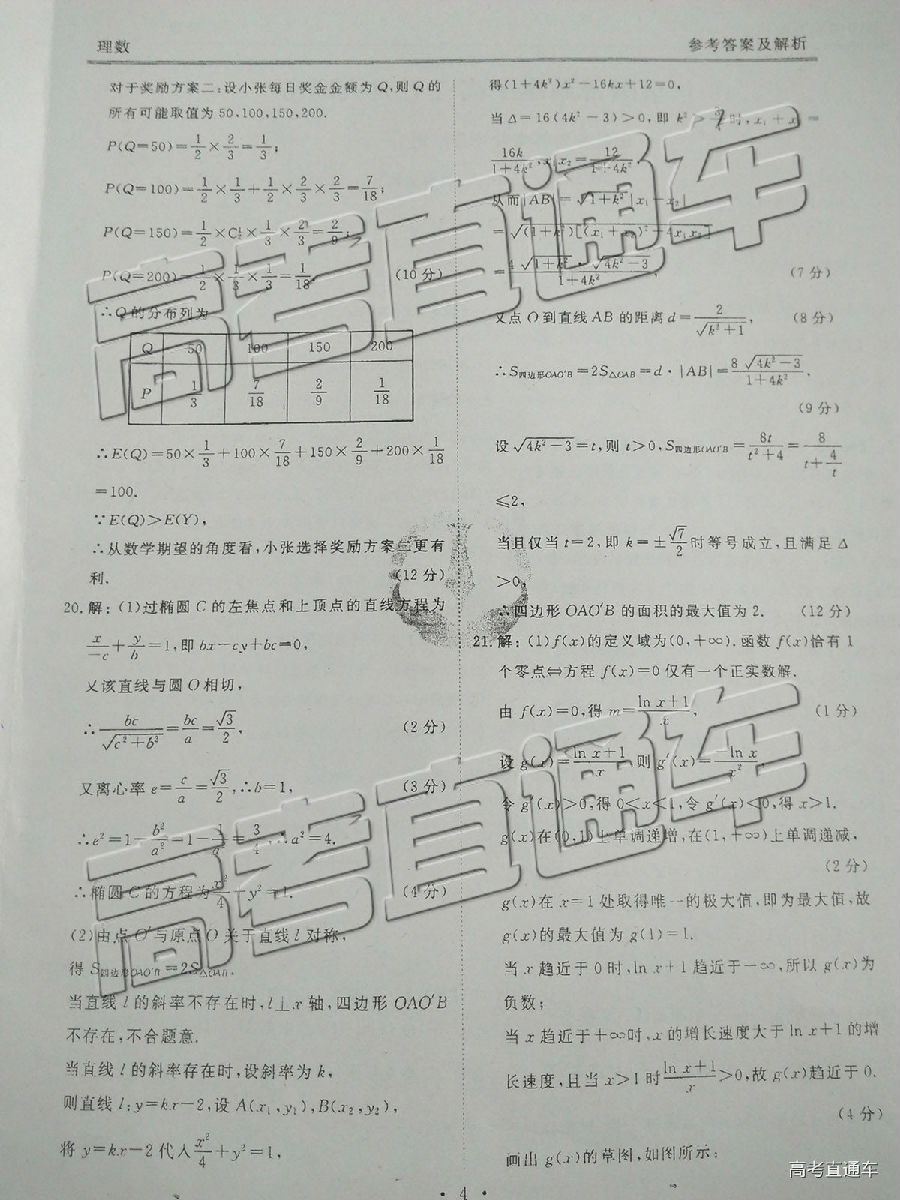 理数
参考答案及解析
对于奖励方案二:设小张每日奖金金额为Q,则Q的
所有可能取值为50,100,150,200.
P(Q=50)=1/2×2/3=1/3;
P(Q=100)=1/2×1/3+1/2×2/3×2/3=7/18;
P(Q=150)=1/2×C½×1/3×2/3=2/9;
P(Q=200)=1/2×1/3×1/3=1/18. (10分)
∴Q的分布列为
Q 50 100 150 200
P 1/3 7/18 2/9 1/18
∴E(Q)=50×1/3+100×7/18+150×2/9+200×1/18
=100.
∵E(Q)>E(Y),
∴从数学期望的角度看,小张选择奖励方案二更有
利. (12分)
20.解:(1)过椭圆C的左焦点和上顶点的直线方程为
x/-c+y/b=1,即bx-cy+bc=0,
又该直线与圆O相切,
∴bc/√(c²+b²)=bc/a=√3/2, (2分)
又离心率e=c/a=√3/2,∴b=1, (3分)
∴e²=1-b²/a²=1-1/a²=3/4,∴a²=4.
∴椭圆C的方程为x²/4+y²=1. (4分)
(2)由点O′与原点O关于直线l对称,
得S四边形OAO′B=2S△OAB.
当直线l的斜率不存在时,l⊥x轴,四边形OAO′B
不存在,不合题意.
当直线l的斜率存在时,设斜率为k,
则直线l:y=kx-2,设A(x₁,y₁),B(x₂,y₂),
将y=kx-2代入x²/4+y²=1,
得(1+4k²)x²-16kx+12=0,
当Δ=16(4k²-3)>0,即k²>时,x₁+x₂=
16k/1+4k²,x₁x₂=12/1+4k²
从而|AB|=√(1+k²)|x₁-x₂|
=√((1+k²)[(x₁+x₂)²-4x₁x₂])
=4√(1+k²)·√(4k²-3)/1+4k² (7分)
又点O到直线AB的距离d=2/√(k²+1), (8分)
∴S四边形OAO′B=2S△OAB=d·|AB|=8√(4k²-3)/1+4k².
(9分)
设√(4k²-3)=t,则t>0,S四边形OAO′B=8t/t²+4=8/t+4/t
≤2,
当且仅当t=2,即k=±√7/2时等号成立,且满足Δ
>0,
∴四边形OAO′B的面积的最大值为2. (12分)
21.解:(1)f(x)的定义域为(0,+∞).函数f(x)恰有1
个零点⇔方程f(x)=0仅有一个正实数解.
由f(x)=0,得m=ln x+1/x, (1分)
设g(x)=ln x+1/x,则g′(x)=-ln x/x².
令g′(x)>0,得0<x<1,令g′(x)<0,得x>1.
g(x)在(0,1)上单调递增,在(1,+∞)上单调递减,
(2分)
g(x)在x=1处取得唯一的极大值,即为最大值,故
g(x)的最大值为g(1)=1.
当x趋近于0时,ln x+1趋近于-∞,所以g(x)为
负数;
当x趋近于+∞时,x的增长速度大于ln x+1的增
长速度,且当x>1时ln x+1/x>0,故g(x)趋近于0.
(4分)
画出g(x)的草图,如图所示:
·4·
高考直通车
高考直通车
高考直通车